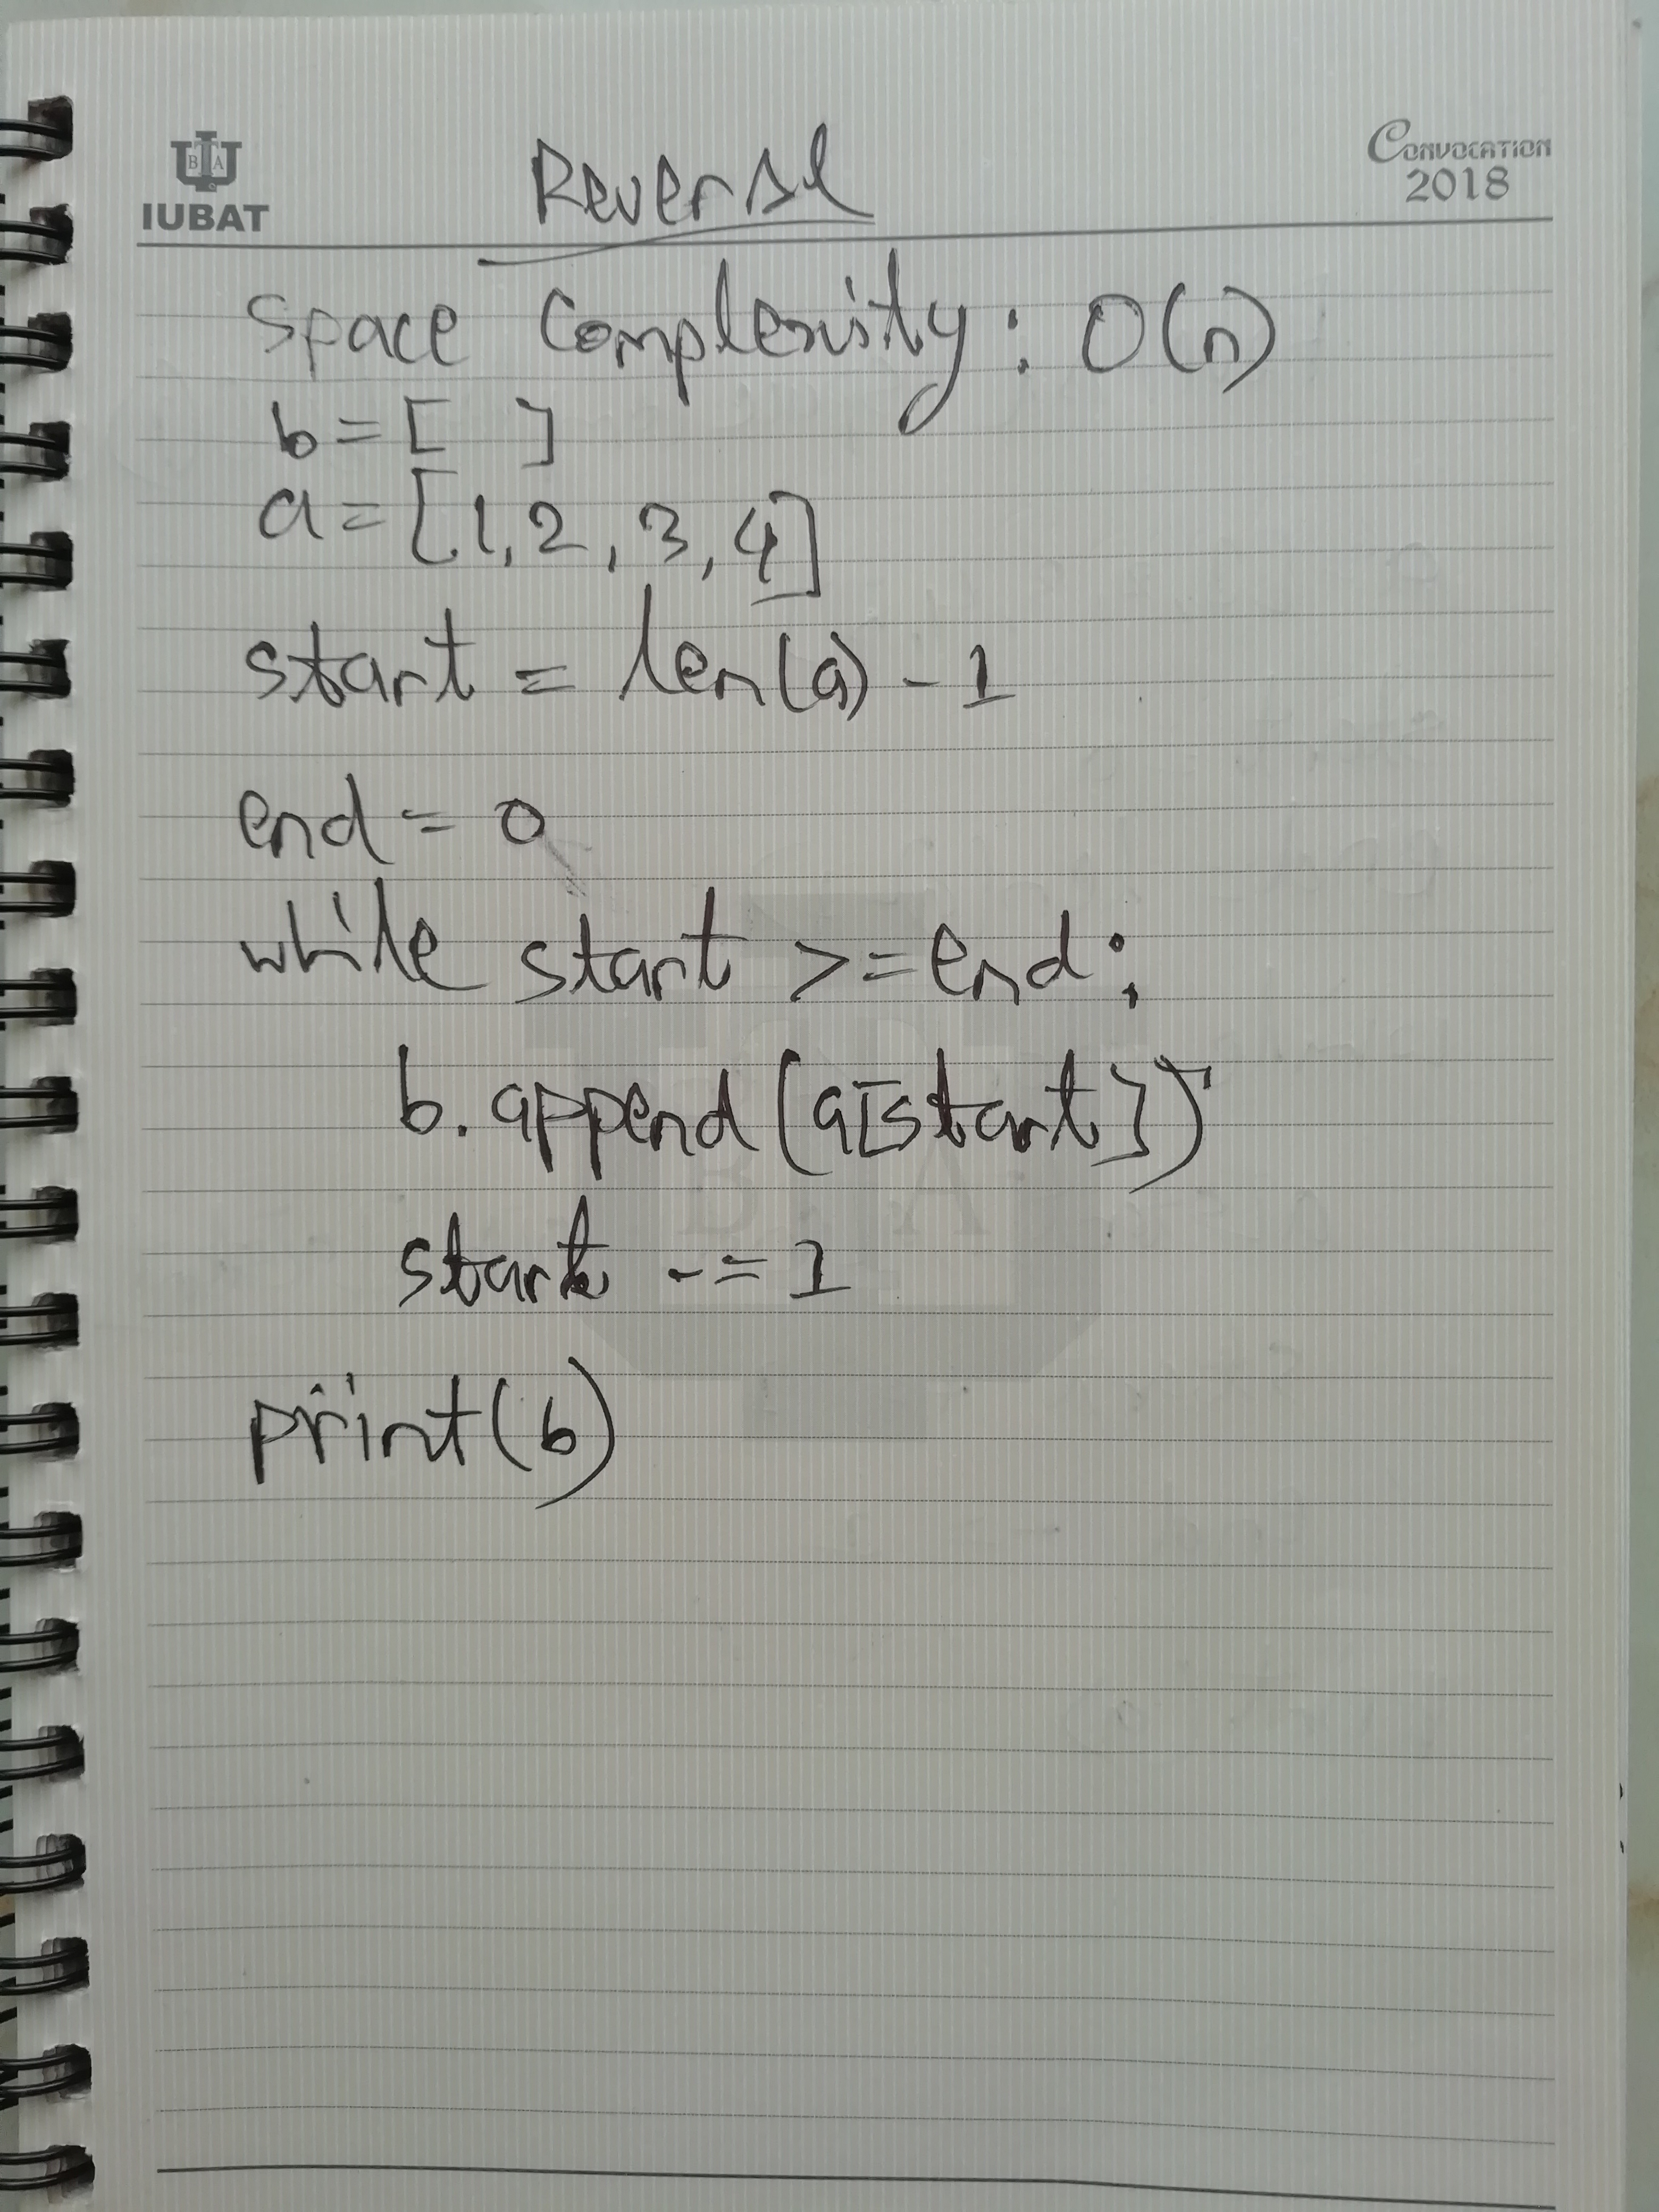 IUBAT
Reverse
CONVOCATION
2018
space complexity: O(n)
b = [ ]
a = [1, 2, 3, 4]
start = len(a) - 1
end = 0
while start >= end:
b.append(a[start])
start -= 1
print(b)